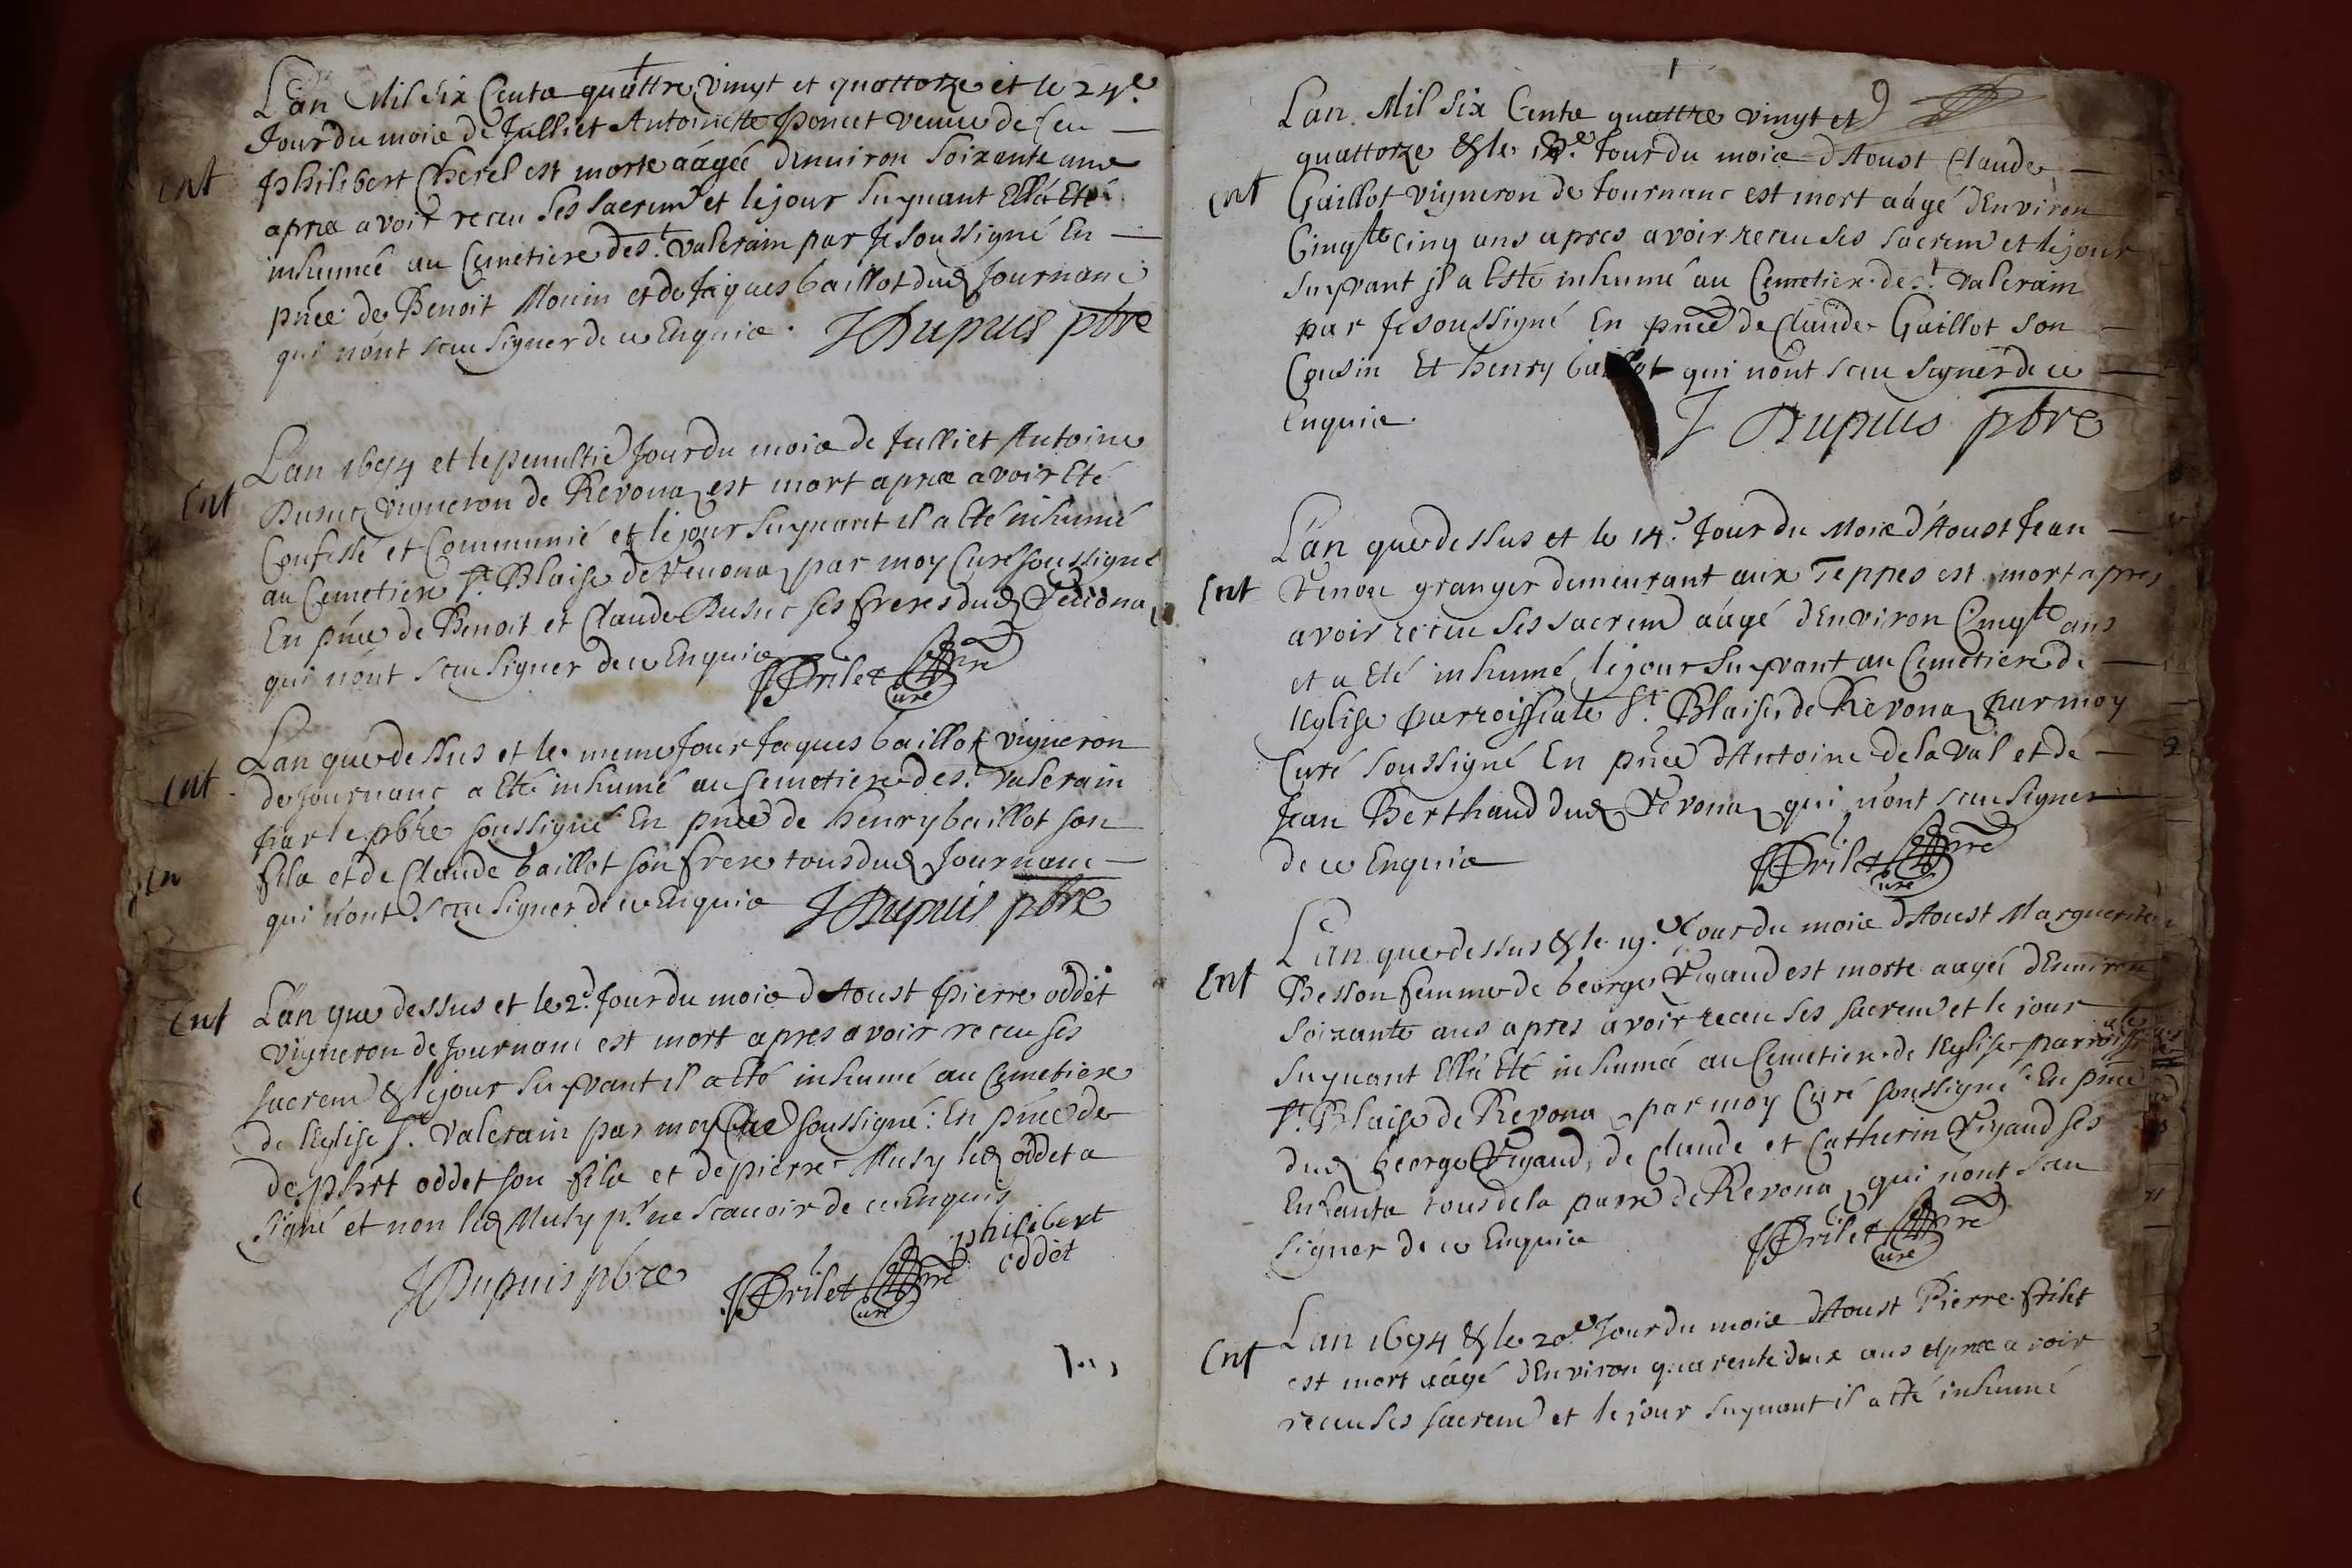 Lan Mil Six Cents quattre vingt et quattorze et le 24.e
Jour du mois de Julliet Antoinette poncet veuve de feu
Ent
philibert Cherel est morte aagée denuiron Soixante ans
apres avoir receu ses Sacrem et le jour Suyuant Ella Eté
inhumée au Cemetiere de St. Valerain par Je Soussigné En
pñce de Benoit Mouin et de Jaques baillot dud Journanc
qui nont sceu signer de ce Enquis. J Dupuis pbre
Lan 1694 et le penultie Jour du mois de Julliet Antoine
Ent
Dusuc vigneron de Revona est mort apres avoir Eté
Confessé et Communié et le jour Suyuant il a Eté inhumé
au Cemetiere St. Blaise de Revona par moy Curé soussigné
En pñce de Benoit et Claude Dusuc ses freres dud Revona
qui nont sceu signer de ce Enquis
Curé
Lan que dessus et le meme Jour Jaques baillot vigneron
Ent
de Journanc a Eté inhumé au Cemetiere de St. Valerain
par le pbre soussigné En pñce de henry baillot son
fils et de Claude baillot son frere tous dud Journanc
qui nont sceu signer de ce Enquis J Dupuis pbre
Ent
Lan que dessus et le 2d. Jour du mois d Aoust pierre oddet
vigneron de Journanc est mort apres avoir receu ses
sacrem & le jour Suyvant il a Eté inhumé au Cemetiere
de lEglise St. Valerain par moy Curé soussigné: En pñce de
de phrt oddet son fils et de pierre Musy led oddet a
signé et non led Musy pr ne scauoir de ce Enquis
philibert
oddet
J Dupuis pbre
Curé
Lan Mil Six Cents quattre vingt et
quattorze & le Jour du mois d Aoust Claude
Ent
Gaillot vigneron de Journanc est mort aagé dEnviron
Cinqte cinq ans apres avoir receu ses sacrem et le jour
Suyvant il a Esté inhumé au Cemetier de St. Valerain
par Je soussigné En pñce de Claude Gaillot son
Cousin Et henry baillot qui nont sceu signer de ce
Enquis.
J Dupuis pbre
Lan que dessus et le 14.e Jour du Mois d'Aoust Jean
Ent
granger demeurant aux Teppes est mort apres
avoir receu ses sacrem aagé dEnviron Cinqte ans
et a Eté inhumé le jour Suyvant au Cemetiere de
lEglise parroissiale St. Blaise de Revona par moy
Curé soussigné En pñce dAntoine delaval et de
Jean Berthaud dud Revona qui nont sceu signer
de ce Enquis
Curé
Lan que dessus & le 19.e Jour du mois d Aoust Marguerite
Ent
Besson femme de George Vigaud est morte aagée dEnviron
Soixante ans apres avoir receu ses sacrem et le jour
Suyuant Ella Eté inhumée au Cemetiere de lEglise parroissiale
St. Blaise de Revona par moy Curé soussigné En pñce
dud George Vigaud, de Claude et Catherin Vigaud ses
Enfants tous de la parre de Revona qui nont sceu
signer de ce Enquis
Curé
Ent
Lan 1694 & le 20.e Jour du mois d Aoust Pierre
est mort aagé dEnviron quarente deux ans apres avoir
receu ses sacrem et le jour Suyuant il a Eté inhumé